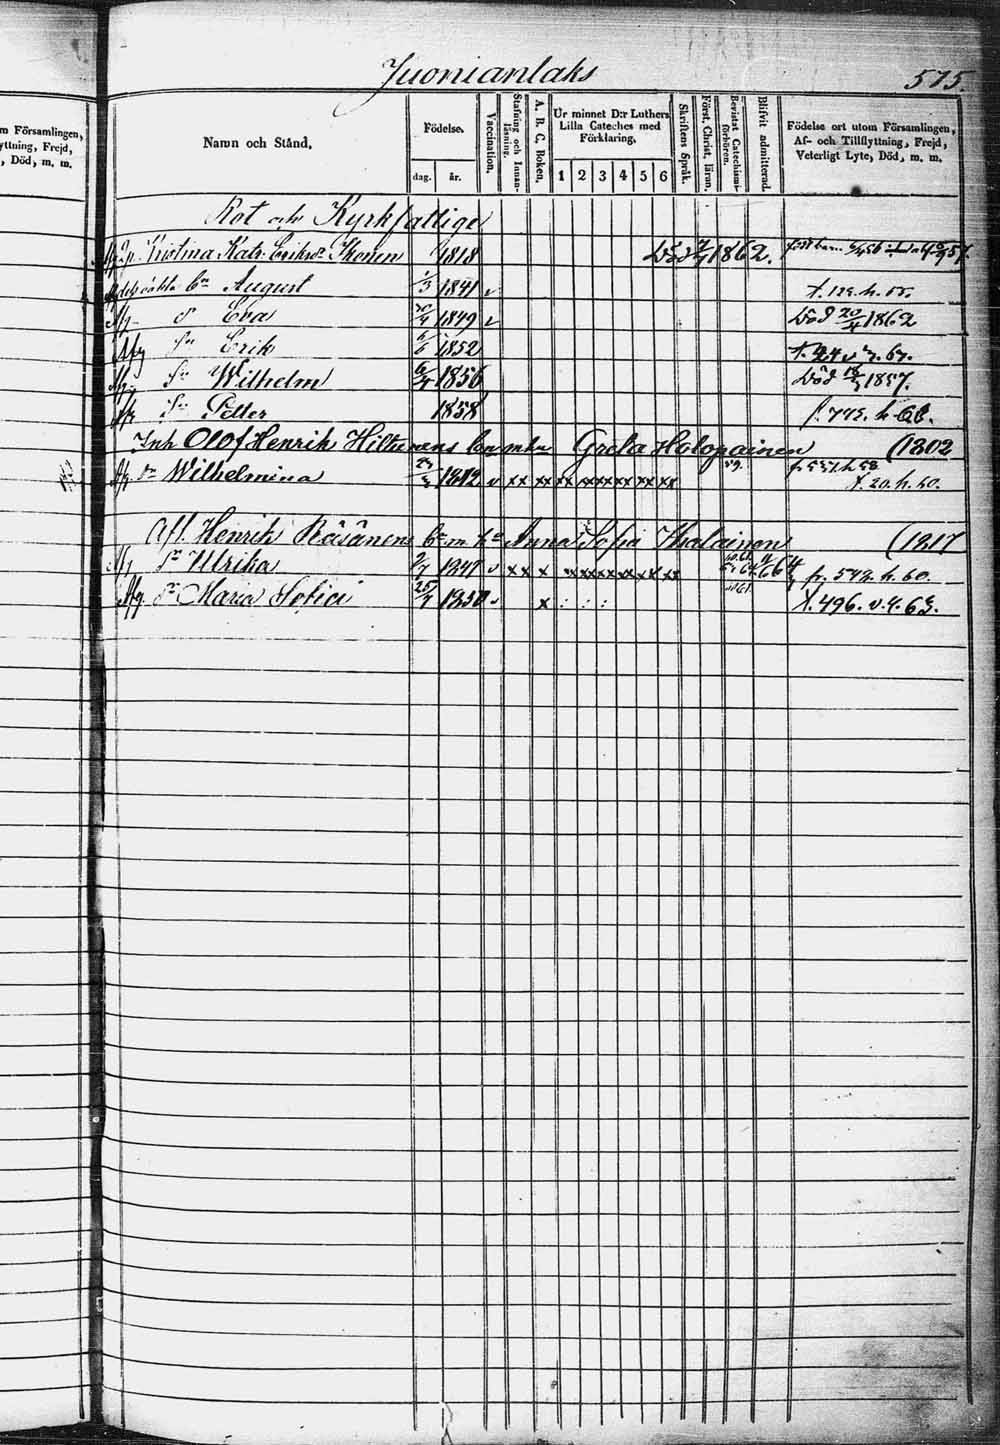 Juonianlaks 575.
m Församlingen,
yttning, Frejd,
, Död, m. m.
Namn och Stånd.
Födelse.
dag.
år.
Vaccination.
Stafning och Innan-läsning.
A. B. C, Boken.
Ur minnet D:r Luthers
Lilla Cateches med
Förklaring.
1 2 3 4 5 6
Skriftens Språk.
Först. Christ. läran.
Bevistat Catechismi-förhören.
Blifvit admitterad.
Födelse ort utom Församlingen,
Af- och Tillflyttning, Frejd,
Veterligt Lyte, Död, m. m.
Rot och Kyrkfattige
Kristina Katr. Eriksdr Ikonen 1818 Död 1862.
August 1841 v f. 129. h.
Eva 1849 v Död 20/4 1862
Erik 1852
Wilhelm 1856 Död 1857.
Petter 1858 f. 775. h. 68.
Inh Olof Henrik Hiltunens Greta Holopainen (1802
Wilhelmina 1842 v xx xx xx xx xx xx xx 59. fr. 551 h 58. f. 20. h. 60.
Afl. Henrik Räsänens Anna Sofia Ihalainen (1817
Ulrika 1847 v xx x xx xx xx xx xx fr. 572. h. 60.
Maria Sofia 25/7 1850 v x : : : f. 496. v. h. 63.